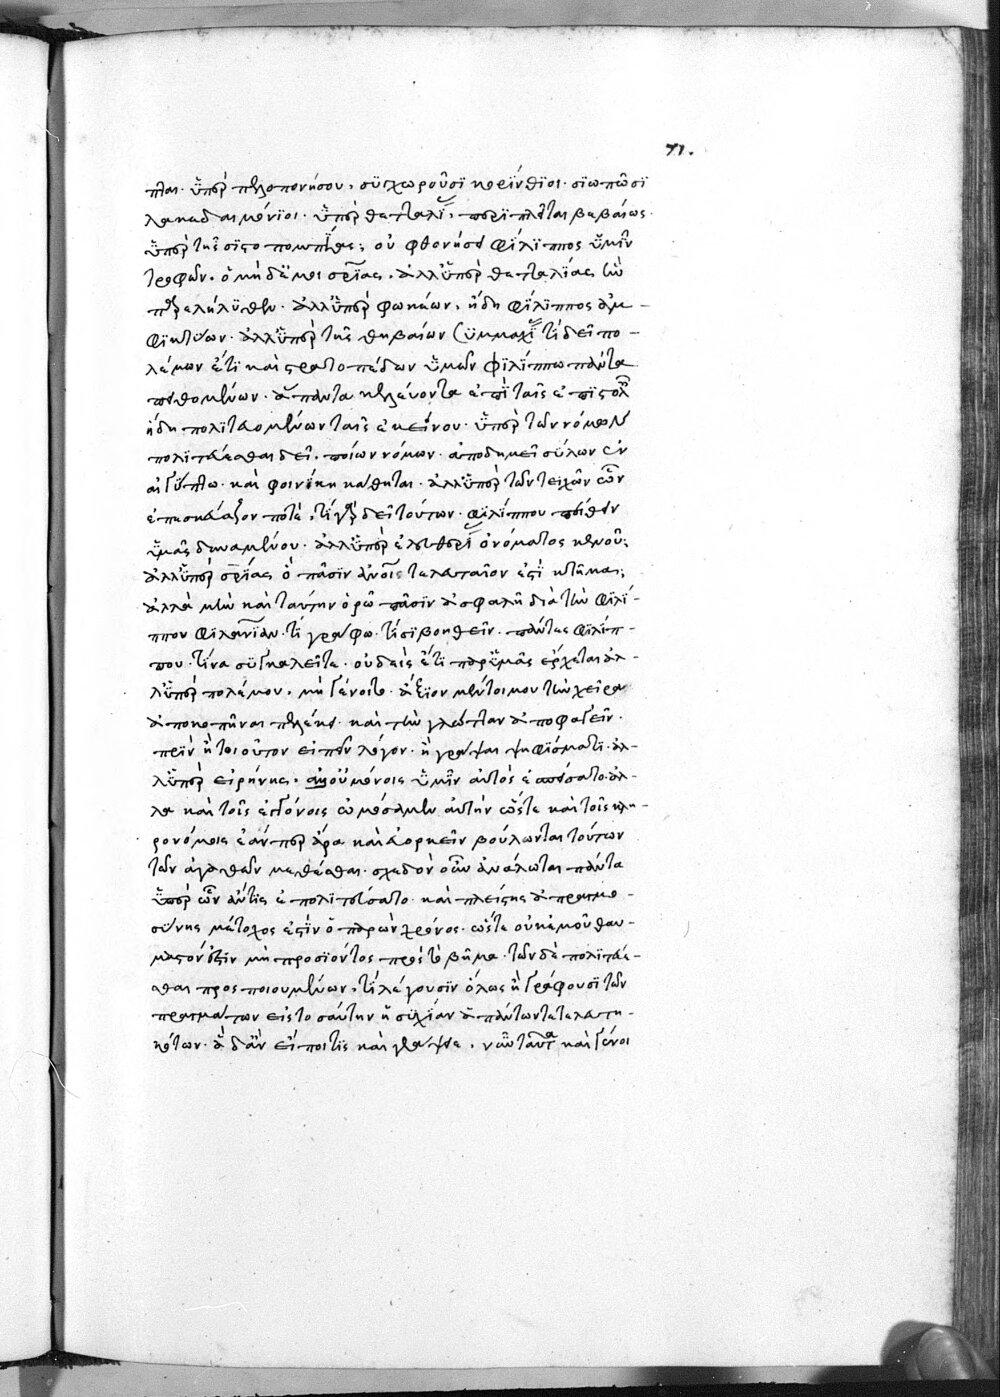 71.
πται· ὑπὲρ πελοποννήσου, συγχωροῦσι κορίνθιοι· σιωπῶσι
λακεδαιμόνιοι· ὑπὲρ θετταλί, περιπλεῖται βεβαίως.
ὑπὲρ τῆς σιτοπομπίας; οὐ φθονήσει φίλιππος ὑμῖν
τροφῶν· ὁ μηδέ μοι σρίας, ἀλλ' ὑπὲρ θετταλίας ἣν
παρελήλυθεν· ἀλλ' ὑπὲρ φωκέων, ἤδη φίλιππος ἀμ-
φικτύων· ἀλλ' ὑπὲρ τῆς θηβαίων συμμαχί τί δεῖ πο-
λέμων ἔτι καὶ στρατοπέδων ὑμῶν φιλίππω πάντα
πειθομένων· ἃ πάντα κελεύοντα ἐπὶ ταῖς ἐπιστολ
ἤδη πολιτευομένων ταῖς ἐκείνου· ὑπὲρ τῶν νόμων
πολιτεύεσθαι δεῖ, ποίων νόμων· ἀποδημεῖ σόλων ἐν
αἰγύπτω· καὶ φοινίκη κάθηται· ἀλλ' ὑπὲρ τῶν τειχῶν ὧν
ἐπεσκεύαζον ποτὲ, τί γὰρ δεῖ τούτων· φιλίππου πείθειν
ὑμᾶς δυναμένου· ἀλλ' ὑπὲρ ἐλευθερί ὀνόματος κενοῦ;
ἀλλ' ὑπὲρ σρίας ὃ πᾶσιν ἀνοις τελευταῖον ἐστὶ κτῆμα;
ἀλλὰ μὴν καὶ ταύτην ὁρῶ πᾶσιν ἀσφαλῆ διὰ τὴν φιλί-
ππου φιλανίαν· τί γράφω· τίσι βοηθεῖν· πάντες φιλίπ-
που· τίνα συγκαλεῖτε· οὐδεὶς ἔτι παρ' ὑμᾶς ἔρχεται ἀλ-
λ' ὑπὲρ πολέμου, μὴ γένοιτο· ἄξιον μέντοι μου τὴν χεῖρα
ἀποκοπῆναι πελέκει· καὶ τὴν γλῶτταν ἀποφαγεῖν·
πρὶν ἢ τοιοῦτον εἰπεῖν λόγον· ἢ γράψαι ψηφίσματι· ἀλ-
λ' ὑπὲρ εἰρήνης, ὑμῖν αὐτὸς ἐπείσατο· ἀλ-
λα καὶ τοῖς ἐκγόνοις ὠμόσαμεν αὐτὴν ὥστε καὶ τοῖς κλη-
ρονόμοις ἐάνπερ ἄρα καὶ εὐορκεῖν βούλωνται τούτων
τῶν ἀγαθῶν μεθέσθαι· σχεδὸν οὖν ἀνάλωται πάντα
ὑπὲρ ὧν ἄν τις ἐπολιτεύσατο· καὶ πλείστης ἀπραγμο-
σύνης μέτοχος ἐστὶν ὁ παρὼν χρόνος· ὥστε οὐκ ἐμοῦ θαυ-
μαστόν ἐστιν μὴ προσιόντος πρὸς τὸ βῆμα· τῶν δὲ πολιτεύε-
σθαι προσποιουμένων, τί λέγουσιν ὅλως ἢ γράφουσι τῶν
πραγμάτων εἰς τοσαύτην ἡσυχίαν ἁπάντων τετελευτη-
κότων· ἃ δ' ἂν εἴποι τις καὶ γράψαι, νῦν ταῦτα καὶ γένοι